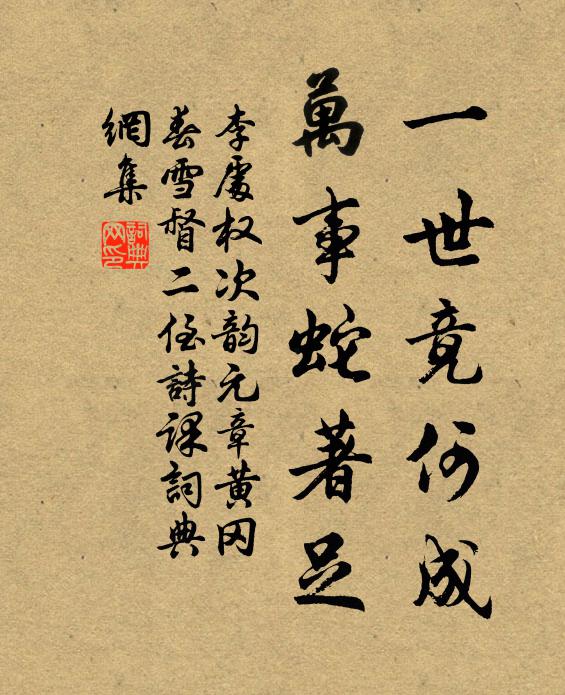 一世竟何成
萬事蛇著足
李處权次韵元章黄冈
春雪督二侄詩課詞典
網集
詞典網印